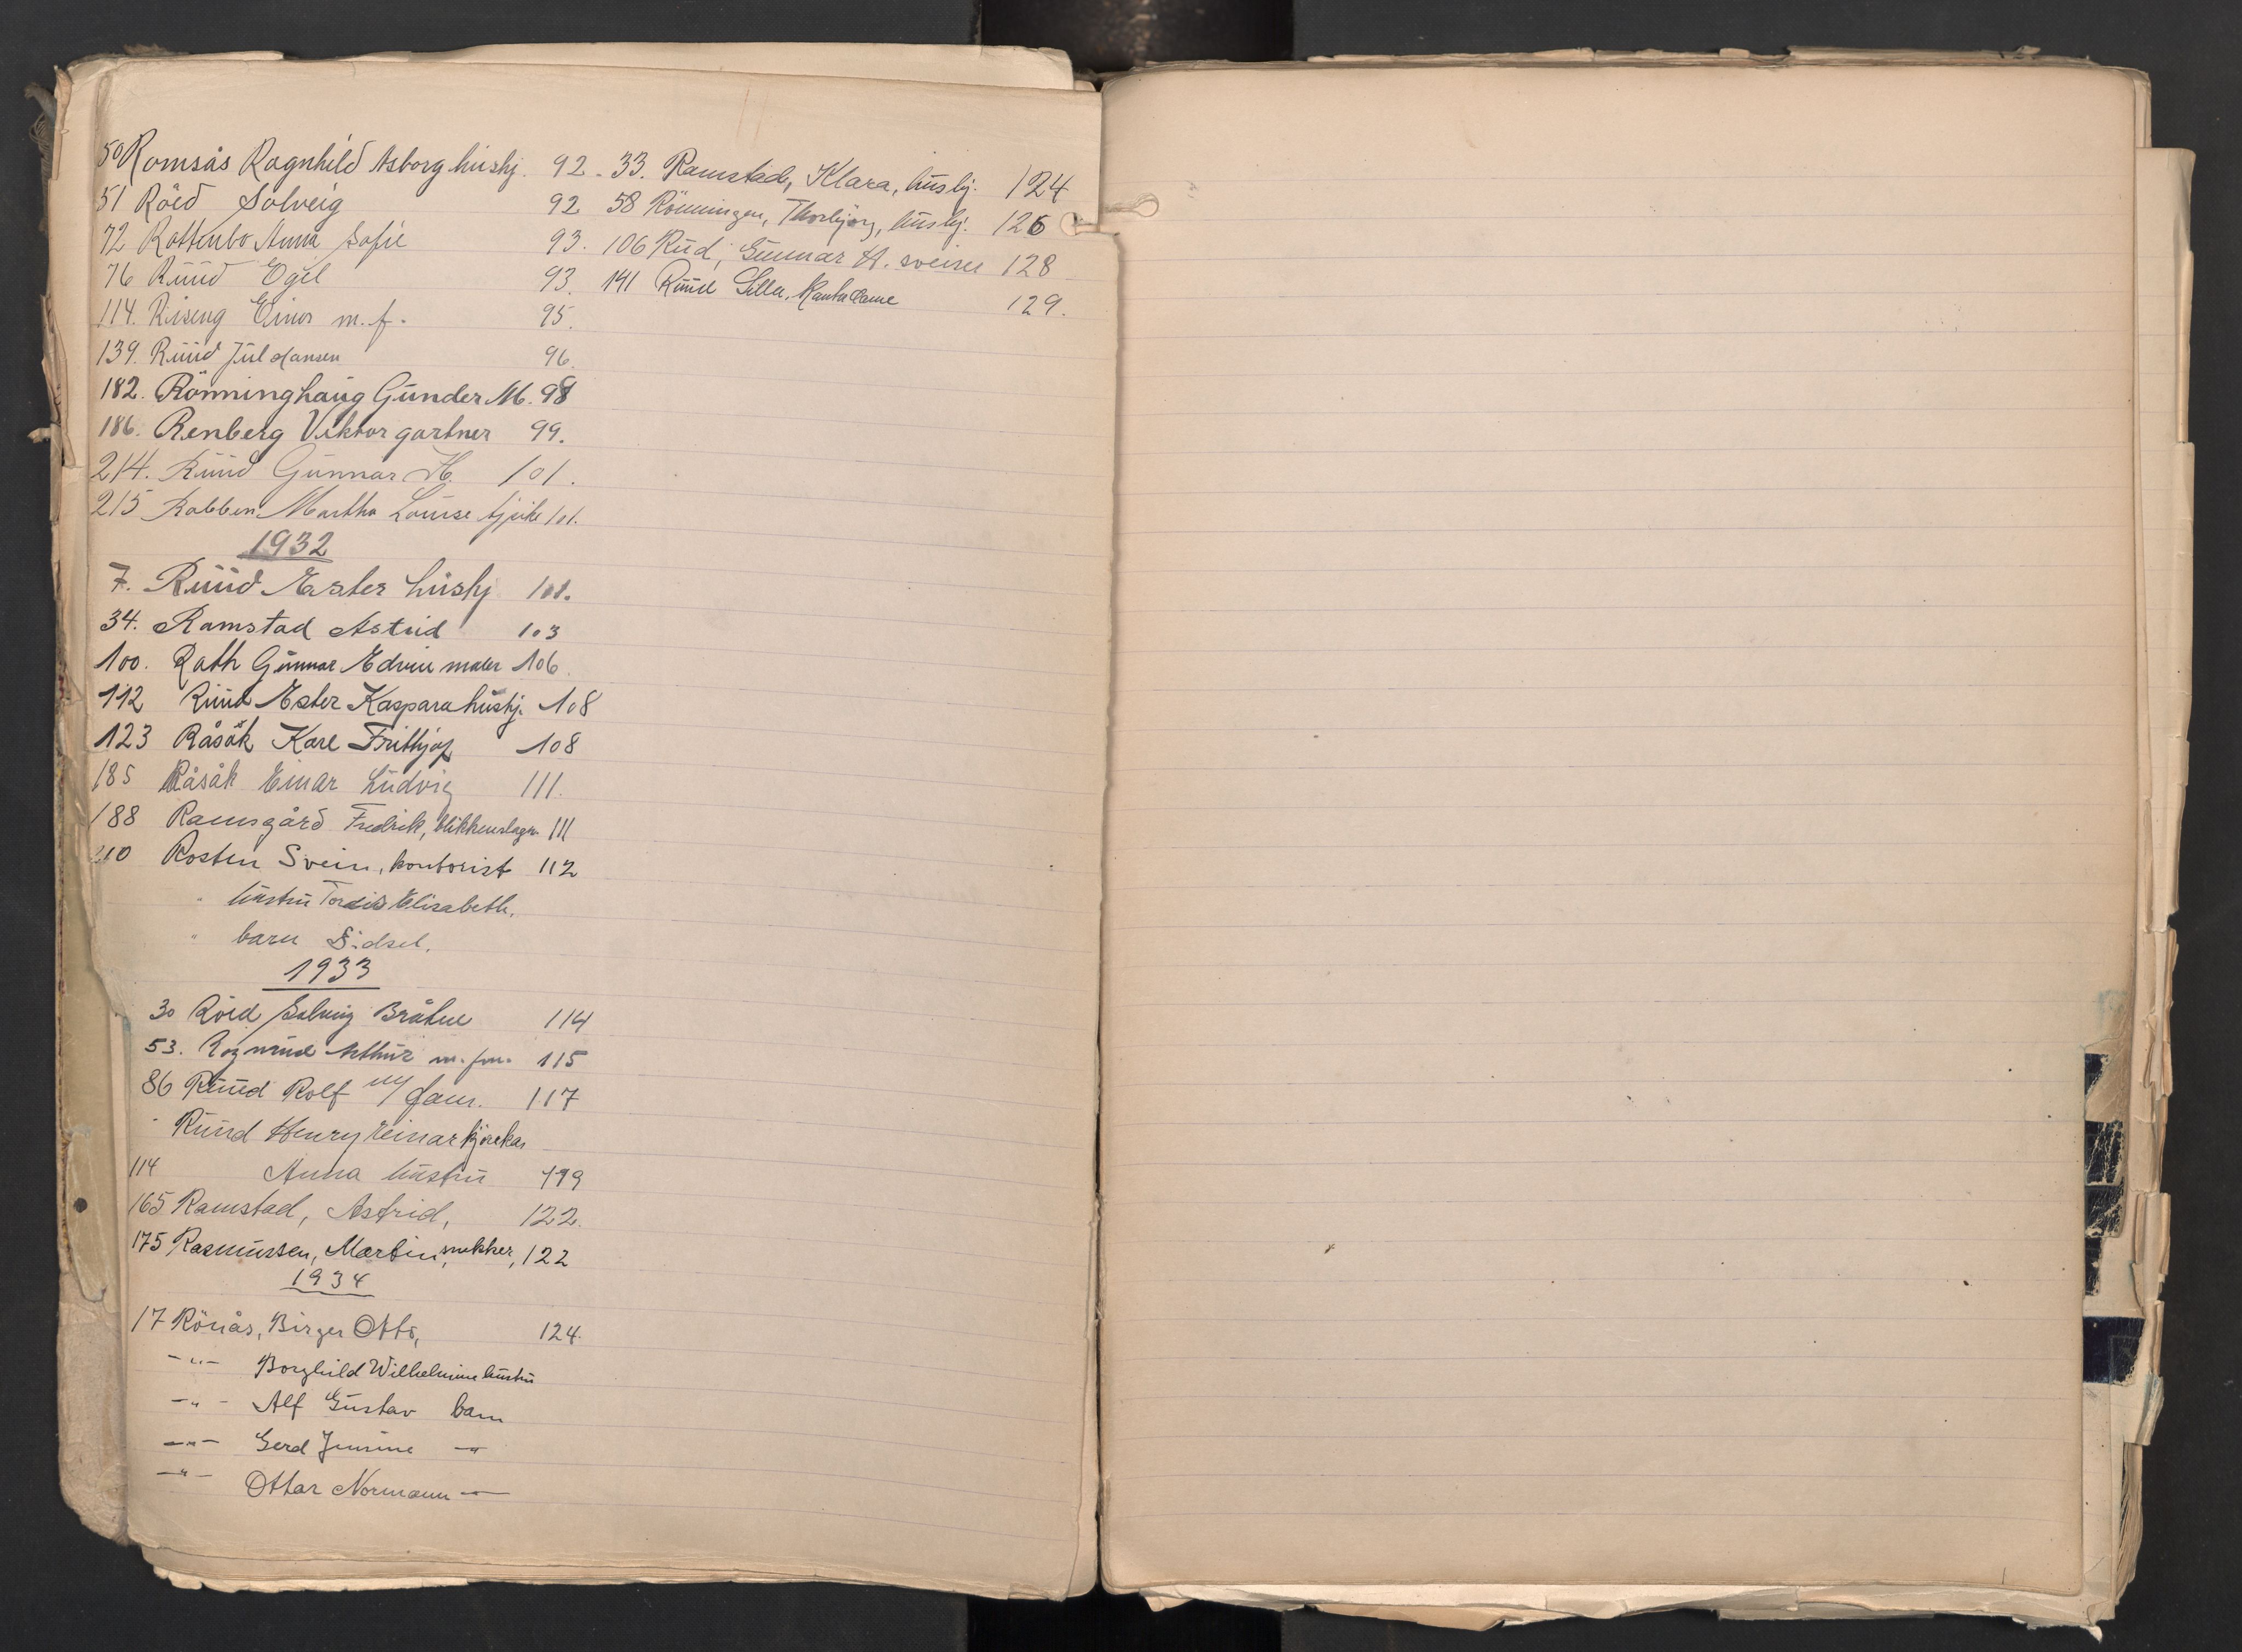 50 Romsås Ragnhild Asborg hushj. 92.
51 Röed Solveig 92
72 Rattenbo Anna Sofie 93.
76 Ruud Egil 93.
114. Riseng Einar m.f. 95.
139. Ruud Jul Hansen 96.
182. Rönninghaug Gunder M. 98
186. Renberg Viktor gartner 99.
214. Ruud Gunnar H. 101.
215 Rabben Martha Louise 101.
1932
7. Ruud Ester hushj 101.
34. Ramstad Astrid 103
100. Rath Gunnar Edvin maler 106.
112 Ruud Ester Kaspara hushj. 108
123 Råsåk Kare Frithjof 108
185 Råsåk Einar Ludvig 111.
188 Ramsgård Fredrik, blikkenslager 111
210 Rosten Svein, kontorist 112
" hustru Tordis Elisabeth.
" barn Sidsel.
1933
30 Röed Solveig Bråtne 114
53. Rognrud Arthur m. fm. 115
86 Ruud Rolf m/ fam. 117
Ruud Henry Einar kjörekar
114 Anna hustru 119
165 Ramstad, Astrid, 122.
175 Rasmussen, Martin, snekker, 122
1934
17 Rönås, Birger Otto, 124.
-"- Borghild Wilhelmine hustru
-"- Alf Gustav barn
-"- Gerd Jensine -"
-"- Ottar Normann -"-
33. Ramstad, Klara, hushj. 124
58 Rönningen, Thorbjörg, hushj. 126
106 Rud, Gunnar H. sveiser 128
141 Ruud Lilla, kontordame 129.